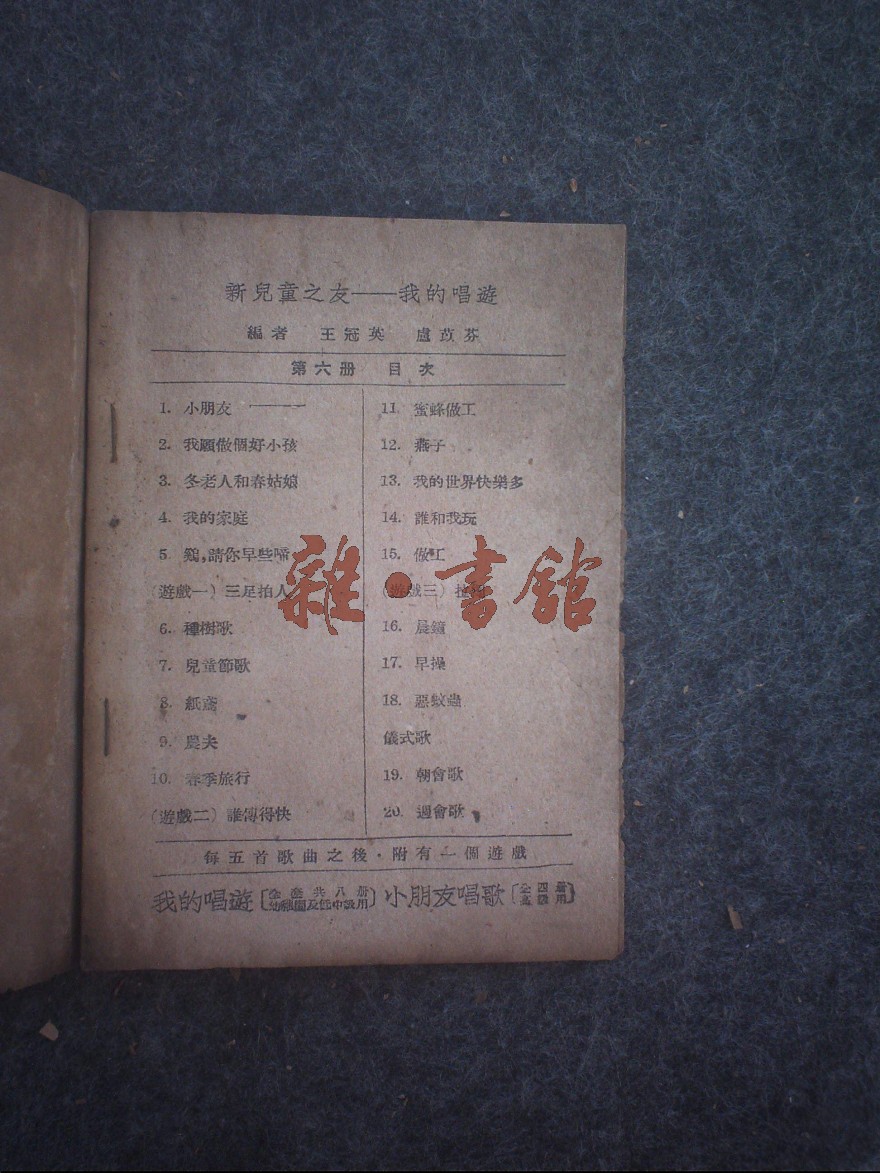 新兒童之友——我的唱遊
編者 王冠英 盧苡芬
第六册 目次
1. 小朋友
2. 我願做個好小孩
3. 冬老人和春姑娘
4. 我的家庭
5. 鷄,請你早些啼
(遊戲一) 三足拍人
6. 種樹歌
7. 兒童節歌
8. 紙鳶
9. 農夫
10. 春季旅行
(遊戲二) 誰傳得快
11. 蜜蜂做工
12. 燕子
13. 我的世界快樂多
14. 誰和我玩
15. 做工
(遊戲三)
16. 晨鐘
17. 早操
18. 惡蚊蟲
儀式歌
19. 朝會歌
20. 週會歌
每五首歌曲之後・附有一個遊戲
我的唱遊 (全套共八册 幼稚園及低中級用) 小朋友唱歌 (全四册 高級用)
雜・書館